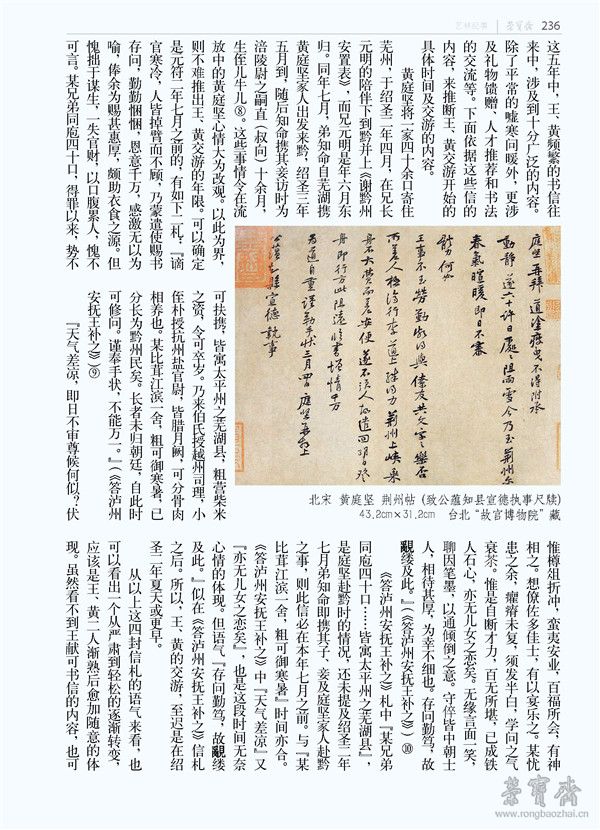 艺林纪事 荣宝斋 236
这五年中，王、黄频繁的书信往
来中，涉及到十分广泛的内容。
除了平常的嘘寒问暖外，更涉
及礼物馈赠、人才推荐和书法
的交流等。下面依据这些信的
内容，来推断王、黄交游开始的
具体时间及交游的内容。
黄庭坚将一家四十余口寄住
芜州，于绍圣二年四月，在兄长
元明的陪伴下到黔并上《谢黔州
安置表》，而兄元明是年六月东
归。同年七月，弟知命自芜湖携
黄庭坚家人出发来黔，绍圣三年
五月到，随后知命携其妾访时为
涪陵尉之嗣直（叔向）十余月，
生侄儿牛儿⑧。这些事情令在流
放中的黄庭坚心情大为改观。以此为界，
则不难推出王、黄交游的年限。可以确定
是元符二年七月之前的，有如下二札：『谪
官寒冷，人皆掉臂而不顾，乃蒙遣使赐书
存问，勤勤悃悃，恩意千万，感激无以为
喻，俸余为赐甚惠厚，颇助衣食之源。但
愧拙于谋生，一失官财，以口腹累人，愧不
可言。某兄弟同庖四十口，得罪以来，势不
可扶携，皆寓太平州之芜湖县，粗营柴米
之资，令可卒岁。乃来伯氏授越州司理，小
侄朴授杭州盐官尉，皆腊月阙，可分骨肉
相养也。某比茸江滨一舍，粗可御寒暑，已
分长为黔州民矣。长者未归朝廷，自此时
可修问。谨奉手状，不能万一。』（《答泸州
安抚王补之》）⑨
『天气差凉，即日不审尊候何似？伏
庭坚再拜道涂疲曳不得附承
动静遂六十许日处处阻雨雪今乃至荆州尔
春气暄暖即日不审
体力何如
王事不至劳勤否
惟樽俎折冲，蛮夷安业，百福所会，有神
相之。想僚佐多佳士，有以宴乐之。某忧
患之余，癯瘠未复，须发半白，学问之气
衰茶。惟是自断才力，百无所堪，已成铁
人石心，亦无儿女之恋矣。无缘言面一笑，
聊因笔墨，以通倾倒之意。守倅皆中朝士
人，相待甚厚，为幸不细也。存问勤笃，故
覼缕及此。』（《答泸州安抚王补之》）⑩
《答泸州安抚王补之》札中『某兄弟
同庖四十口……皆寓太平州之芜湖县』，
是庭坚赴黔时的情况，还未提及绍圣二年
七月弟知命即携其子、妾及庭坚家人赴黔
之事，则此信必在本年七月之前。与『某
比茸江滨一舍，粗可御寒暑』时间亦合。
《答泸州安抚王补之》中『天气差凉』又
『亦无儿女之恋矣』，也是这段时间无奈
心情的体现。但语气『存问勤笃，故覼缕
及此。』似在《答泸州安抚王补之》信札
之后。所以，王、黄的交游，至迟是在绍
圣二年夏天或更早。
从以上这四封信札的语气来看，也
可以看出一个从严肃到轻松的逐渐转变，
应该是王、黄二人渐熟后愈加随意的体
现。虽然看不到王献可书信的内容，也可
北宋 黄庭坚 荆州帖（致公蕴知县宣德执事尺牍）
43.2cm×31.2cm 台北“故宫博物院”藏
荣宝斋
www.rongbaozhai.cn